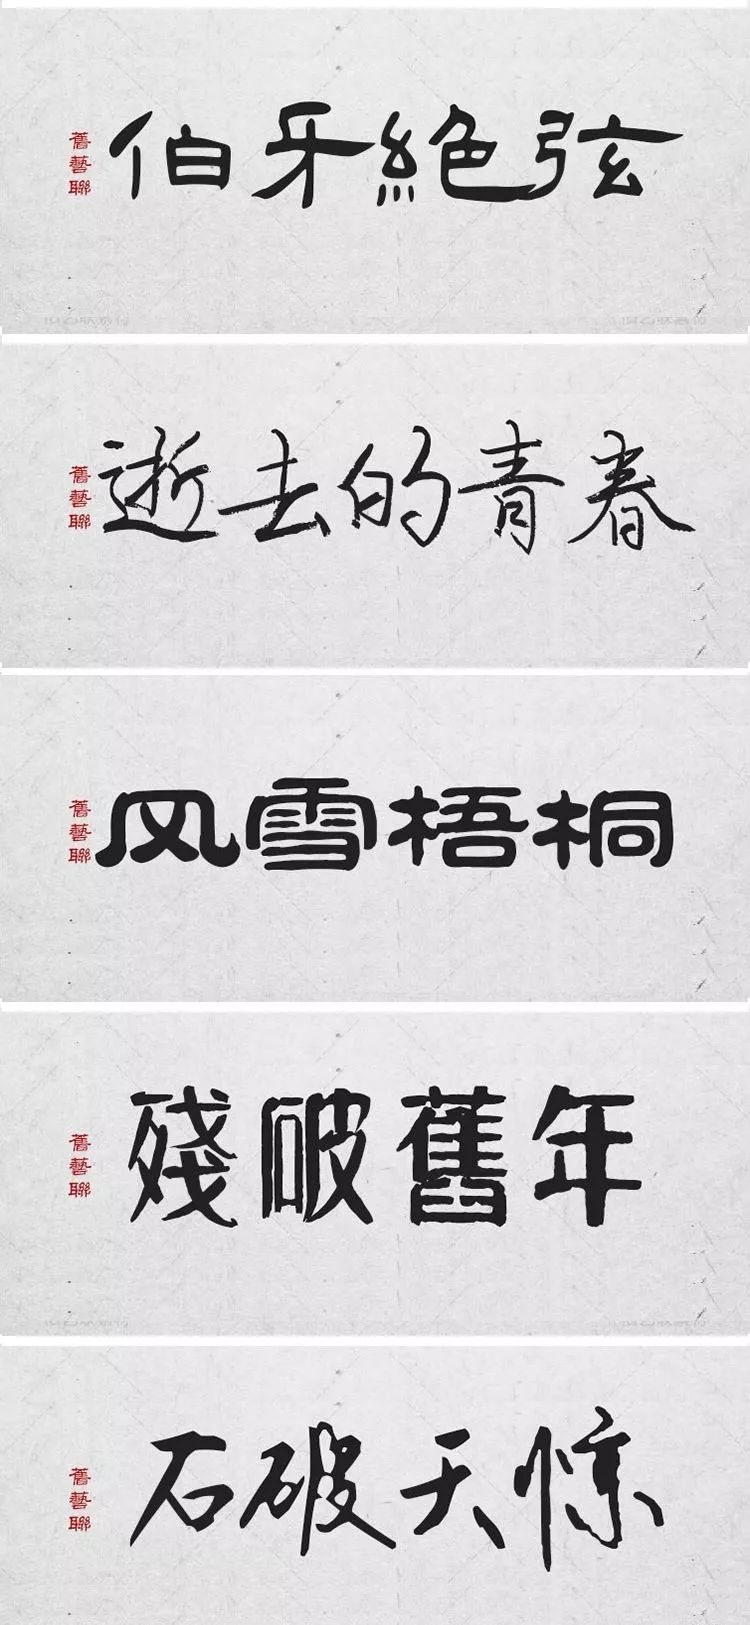 伯牙絶弦
舊藝聯
逝去的青春
舊藝聯
风雪梧桐
舊藝聯
殘破舊年
舊藝聯
石破天惊
舊藝聯